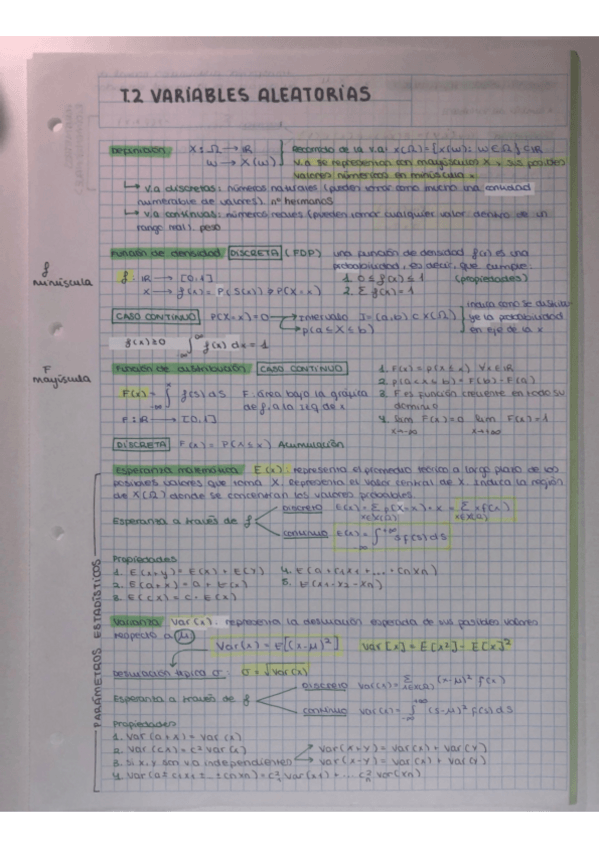 T.2 VARIABLES ALEATORIAS
Definición X: Ω → IR Recorrido de la v.a: X(Ω) = {x(ω): ω ∈ Ω} ⊂ IR
ω → X(ω) v.a se representan con mayúsculas X y sus posibles
valores númericos en minúscula
↳ v.a discretas: números naturales (pueden tomar como mucho una cantidad
numerable de valores). nº hermanos
↳ v.a continuas: números reales (pueden tomar cualquier valor dentro de un
rango real). peso
Función de densidad DISCRETA (FDP) una función de densidad f(x) es una
probabilidad, es decir, que cumple:
f minúscula
f: IR → [0,1] 1. 0 ≤ f(x) ≤ 1 (propiedades)
x → f(x) = P(S(x)) = P(X=x) 2. Σ f(x) = 1
CASO CONTINUO P(X=x) = 0 → Intervalo J = (a,b) ⊂ X(Ω) indica como se distribu-
→ p(a ≤ X ≤ b) ye la probabilidad
en eje de la x
f(x) ≥ 0 ∫ f(x) dx = 1
F mayúscula
Función de distribución CASO CONTINUO 1. F(x) = p(X ≤ x) ∀x ∈ IR
2. p(a < x ≤ b) = F(b) - F(a)
F(x) = ∫ f(s) ds F. área bajo la gráfica 3. F es función creciente en todo su
de f, a la izq de x dominio
F: IR → [0,1] 4. lim F(x) = 0 lim F(x) = 1
x→-∞ x→+∞
DISCRETA F(x) = P(X ≤ x) Acumulación
PARÁMETROS ESTADÍSTICOS
Esperanza matemática E(x): representa el promedio teórico a largo plazo de los
posibles valores que toma X. Representa el valor central de X. Indica la región
de X(Ω) donde se concentran los valores probables.
Esperanza a través de f
Discreto E(x) = Σ p(X=x) · x = Σ x f(x)
x∈X(Ω) x∈X(Ω)
continuo E(x) = ∫ s f(s) ds
Propiedades
1. E(x+y) = E(x) + E(y) 4. E(a + c1x1 + ... + cnxn)
2. E(a+x) = a + E(x) 5. E(x1 · x2 · xn)
3. E(cx) = c · E(x)
Varianza Var(x): representa la desviación esperada de sus posibles valores
respecto a μ
Var(x) = E[(x-μ)²] Var[x] = E[x²] - E[x]²
Desviación típica σ: σ = √Var(x)
Esperanza a través de f
Discreto Var(x) = Σ (x-μ)² f(x)
x∈X(Ω)
continuo Var(x) = ∫ (s-μ)² f(s) ds
Propiedades
1. Var(a+x) = Var(x)
2. Var(cx) = c² Var(x) Var(x+y) = Var(x) + Var(y)
3. Si x,y son va independientes Var(x-y) = Var(x) + Var(y)
4. Var(a ± c1x1 ± ... ± cnxn) = c₁² Var(x1) + ... cn² Var(xn)